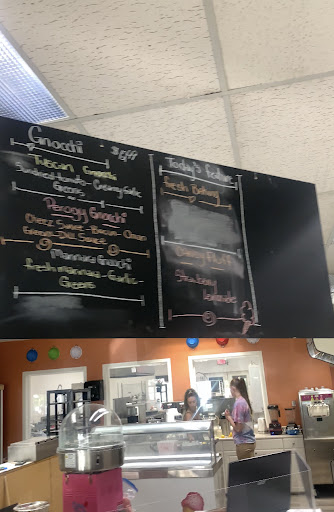 Gnocchi
Tuscan Gnocchi
Sundried tomato - Creamy Garlic
Greens
Perogy Gnocchi
Cheez Sauce - Bacun - Onion
Dill Sauce
Marinara Gnocchi
fresh marinara - Garlic -
Greens
Today's feature
fresh Baking
Candy Fluff
Strawberry
lemonade